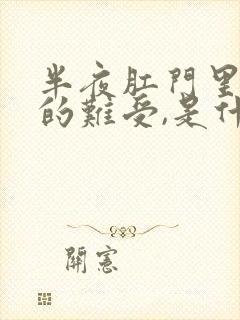 半夜肛門里
的難受,是什
開憲